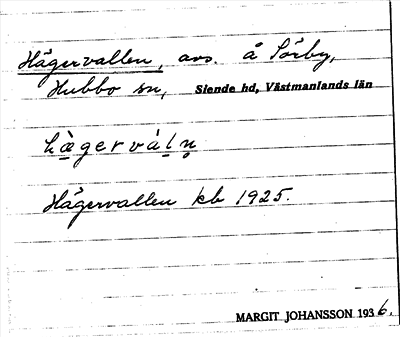 Hägervallen, avs. å Sörby,
Hubbo sn, Siende hd, Västmanlands län
hä̀gervàḷṇ
Hägervallen kb 1925.
MARGIT JOHANSSON 1936.